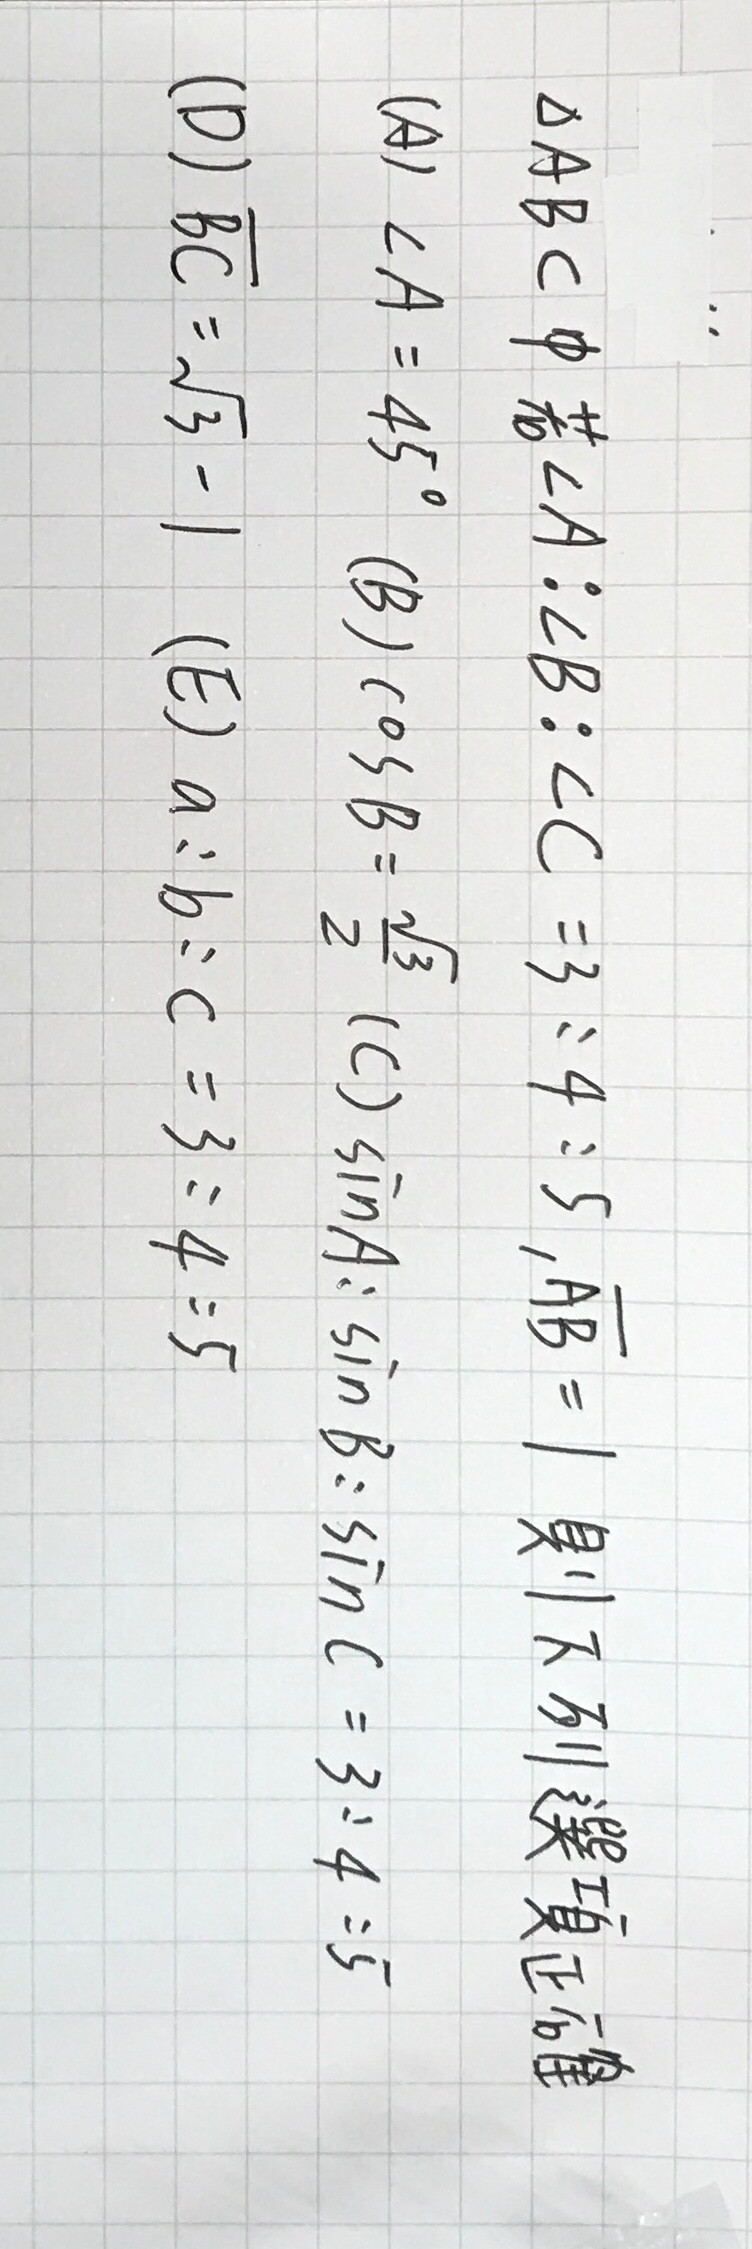 △ABC中若∠A:∠B:∠C=3:4:5, \overline{AB}=1 則下列選項正確
(A) ∠A=45° (B) cosB=\frac{√3}{2} (C) sinA:sinB:sinC=3:4:5
(D) \overline{BC}=√3-1 (E) a:b:c=3:4:5